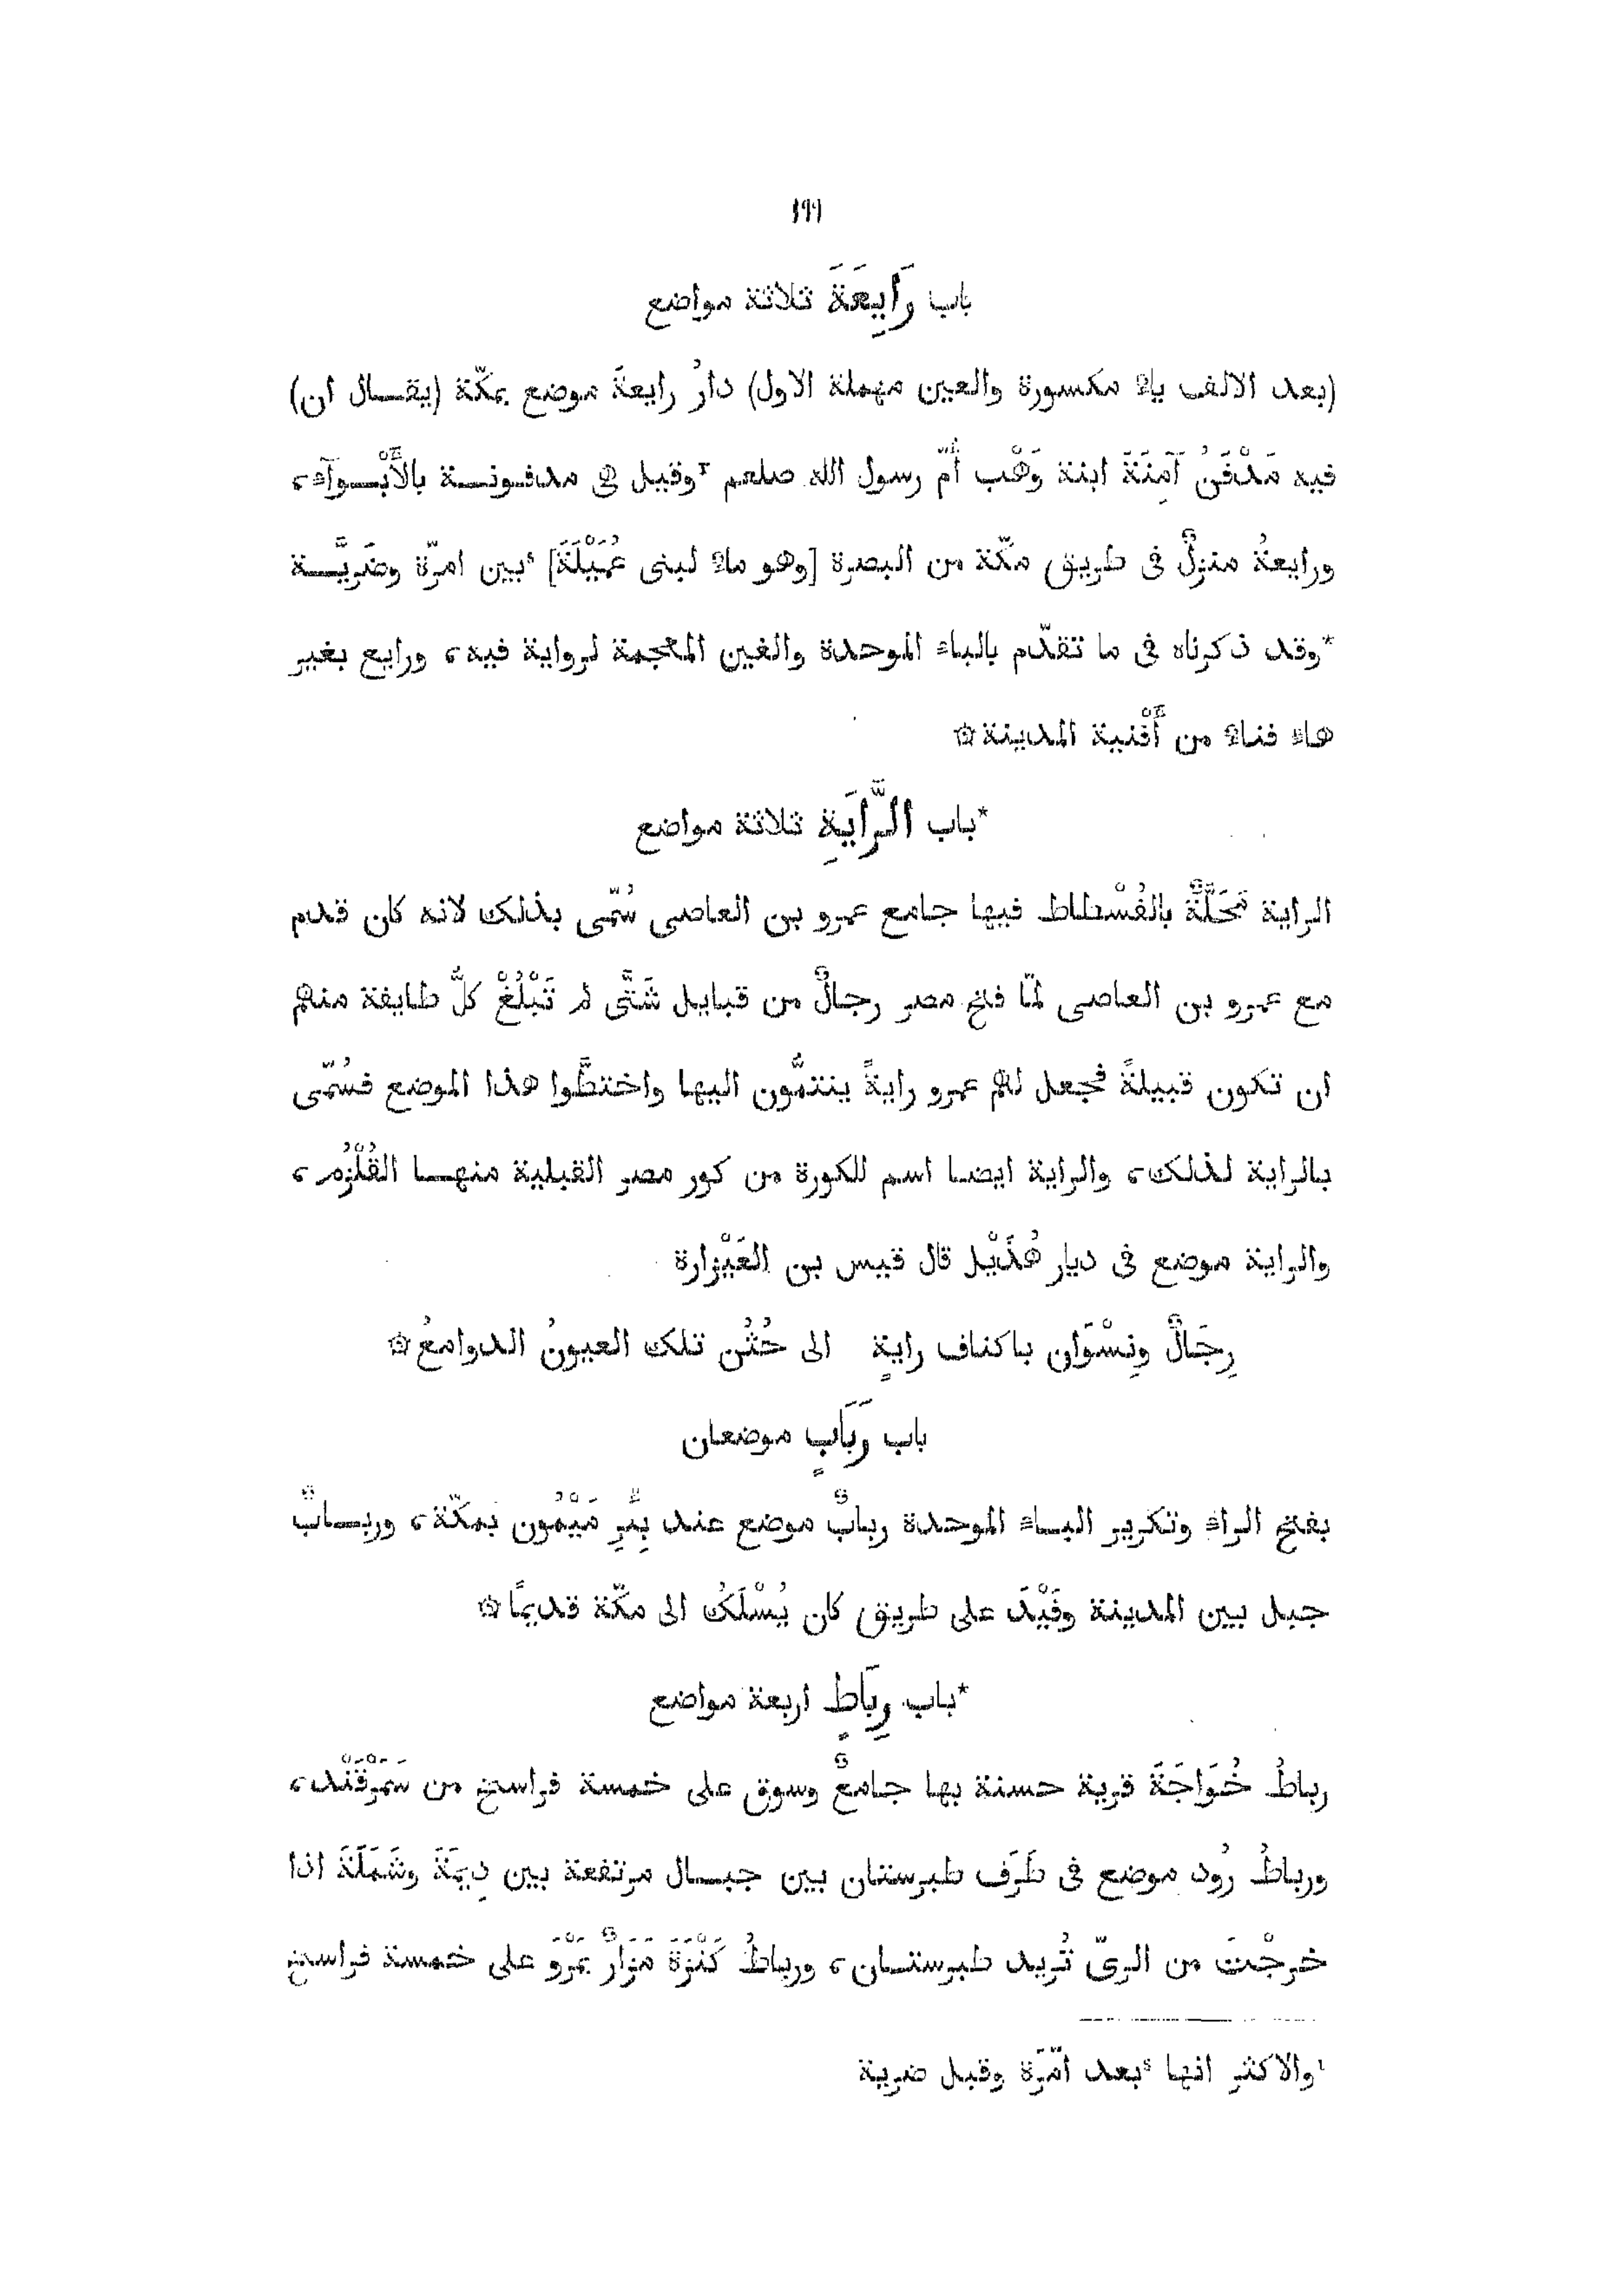 ١٩٩
باب رَايِعَةَ ثلاثة مواضع
(بعد الالف ياءٌ مكسورة والعين مهملة الاول) دارُ رايعةَ موضع بمكّة (يقـال ان)
فيه مَدْفَنُ آمِنَةَ ابنة وَهْب أُمّ رسول الله صلعم ٢وقيل هى مدفونـة بالأَبْـوآء،
ورايعةُ منزلٌ فى طريق مكّة من البصرة [وهو ماءٌ لبنى عُمَيْلَةَ] ٤بين امرّة وضَريَّـة
*وقد ذكرناه فى ما تقدّم بالباء الموحدة والغين المعجمة لرواية فيه، ورايع بغير
هاء فناءٌ من أَفْنية المدينة ۞
*باب الرَّايَةِ ثلاثة مواضع
الراية مَحَلَّةٌ بالفُسْطاط فيها جامع عمرو بن العاصى سُمّى بذلك لانه كان قدم
مع عمرو بن العاصى لمّا فتح مصر رجالٌ من قبايل شَتَّى لم تَبْلُغْ كلُّ طايفة منهم
ان تكون قبيلةً فجعل لهم عمرو رايةً ينتمُّون اليها واختطُّوا هذا الموضع فسُمّى
بالراية لذلك، والراية ايضا اسم للكورة من كور مصر القبلية منهـا القُلْزُم،
والراية موضع فى ديار هُذَيْل قال قيس بن العَيْزارة
رِجَالٌ ونِسْوَان باكناف رايةٍ الى حُثُن تلك العيونُ الدوامعُ ۞
باب رَبَابٍ موضعان
بفتح الراء وتكرير البـاء الموحدة ربابٌ موضع عند بِئْرِ مَيْمُون بمكّة، وربـابٌ
جبل بين المدينة وفَيْدَ على طريق كان يُسْلَكُ الى مكّة قديمًا ۞
*باب رِبَاطٍ اربعة مواضع
رباطُ خُوَاجَةَ قرية حسنة بها جامعٌ وسوق على خمسة فراسخ من سَمَرْقَنْد،
ورباطُ رُود موضع فى طَرَف طبرستان بين جبـال مرتفعة بين دِيمَةَ وشَمَلَةَ اذا
خرجْتَ من الرىّ تُريد طبرستـان، ورباطُ كَنْزَةَ مَزَارٌ بمَرْوَ على خمسة فراسخ
١والاكثر انها ٤بعد امّرَة وقبل ضرية